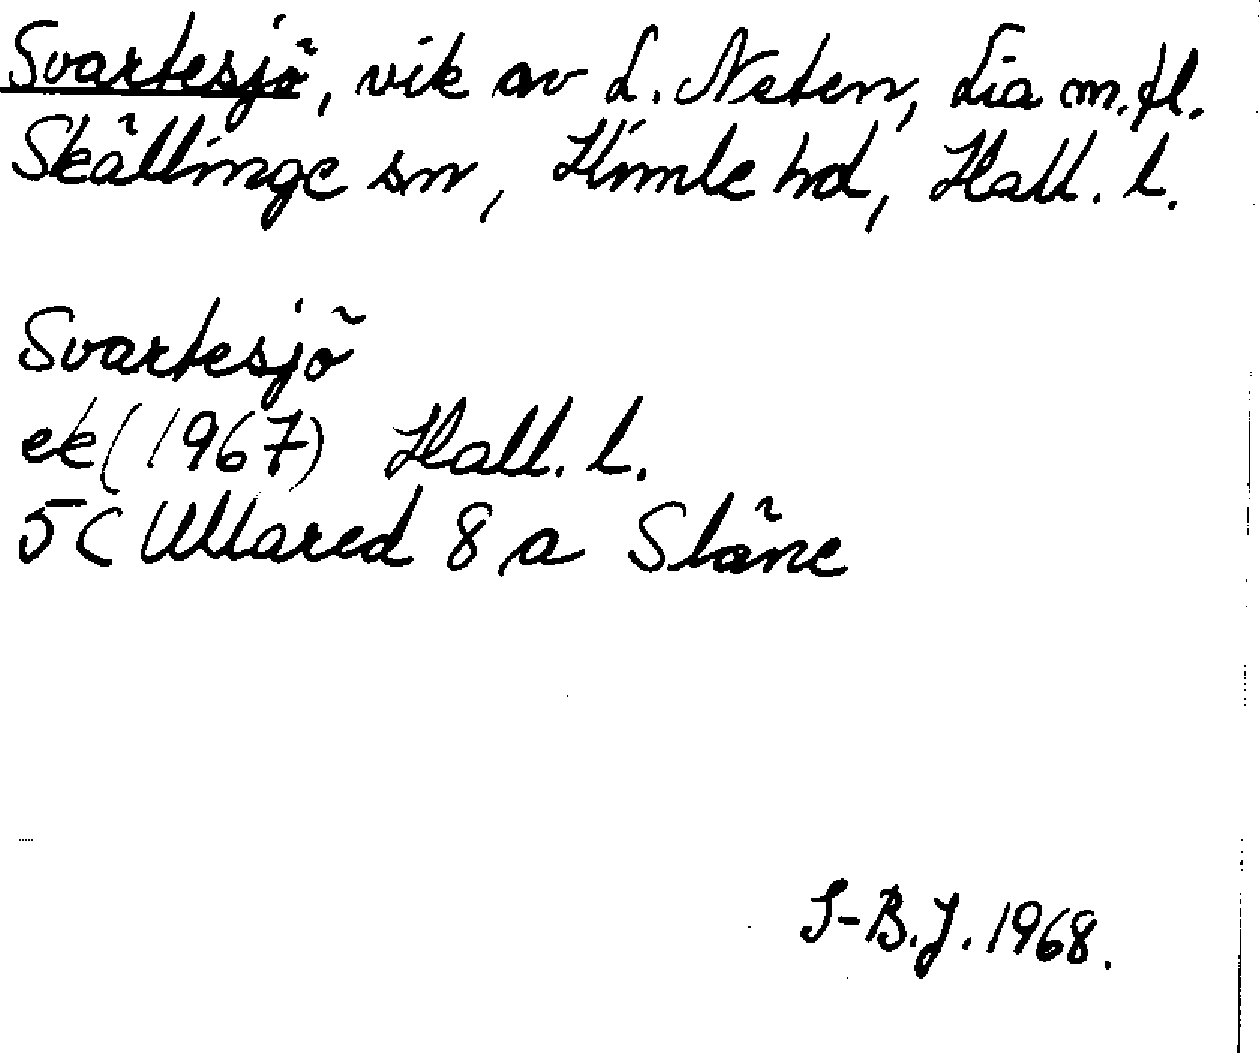 Svartesjö, vik av L. Neten, Lia m.fl.
Skällinge sn, Himle hd, Hall. l.
Svartesjö
ek (1967) Hall. l.
5C Ullared 8 a Slåne
S-B.J. 1968.